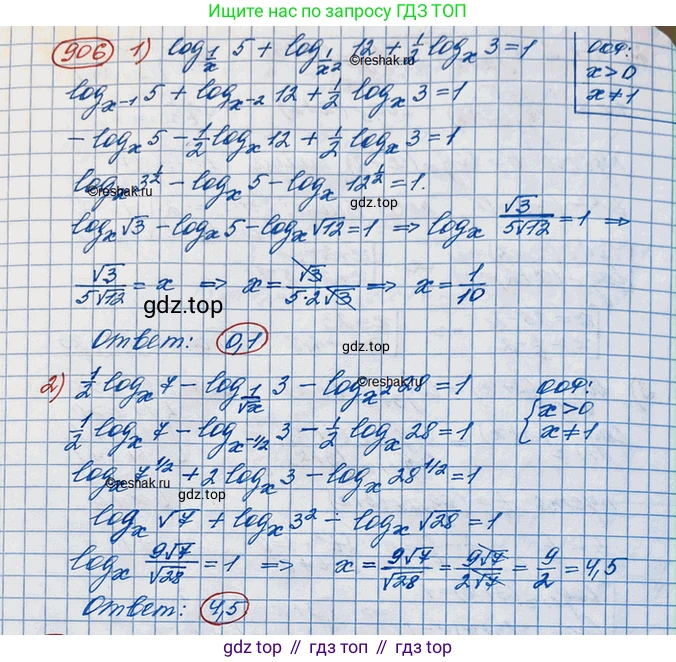 Ищите нас по запросу ГДЗ ТОП
906 1) log_{1/x} 5 + log_{1/x²} 12 + 1/2 log_x 3 = 1
ООФ:
x>0
x≠1
log_{x⁻¹} 5 + log_{x⁻²} 12 + 1/2 log_x 3 = 1
- log_x 5 - 1/2 log_x 12 + 1/2 log_x 3 = 1
log_x 3^{1/2} - log_x 5 - log_x 12^{1/2} = 1.
log_x √3 - log_x 5 - log_x √12 = 1 ⇒ log_x √3/(5√12) = 1 ⇒
√3/(5√12) = x ⇒ x = √3/(5·2√3) ⇒ x = 1/10
Ответ: 0,1
2) 1/2 log_x 7 - log_{1/√x} 3 - log_{x²} 28 = 1
ООФ:
{x>0
x≠1
1/2 log_x 7 - log_{x^{-1/2}} 3 - 1/2 log_x 28 = 1
log_x 7^{1/2} + 2 log_x 3 - log_x 28^{1/2} = 1
log_x √7 + log_x 3² - log_x √28 = 1
log_x 9√7/√28 = 1 ⇒ x = 9√7/√28 = 9√7/2√7 = 9/2 = 4,5
Ответ: 4,5
©reshak.ru
©reshak.ru
gdz.top
gdz.top
gdz.top
©reshak.ru
©reshak.ru
gdz.top
gdz top // гдз топ // gdz top // гдз топ